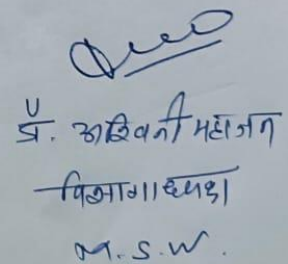 प्रं. अश्विनी महाजन
विभागाध्यक्ष
M.S.W.